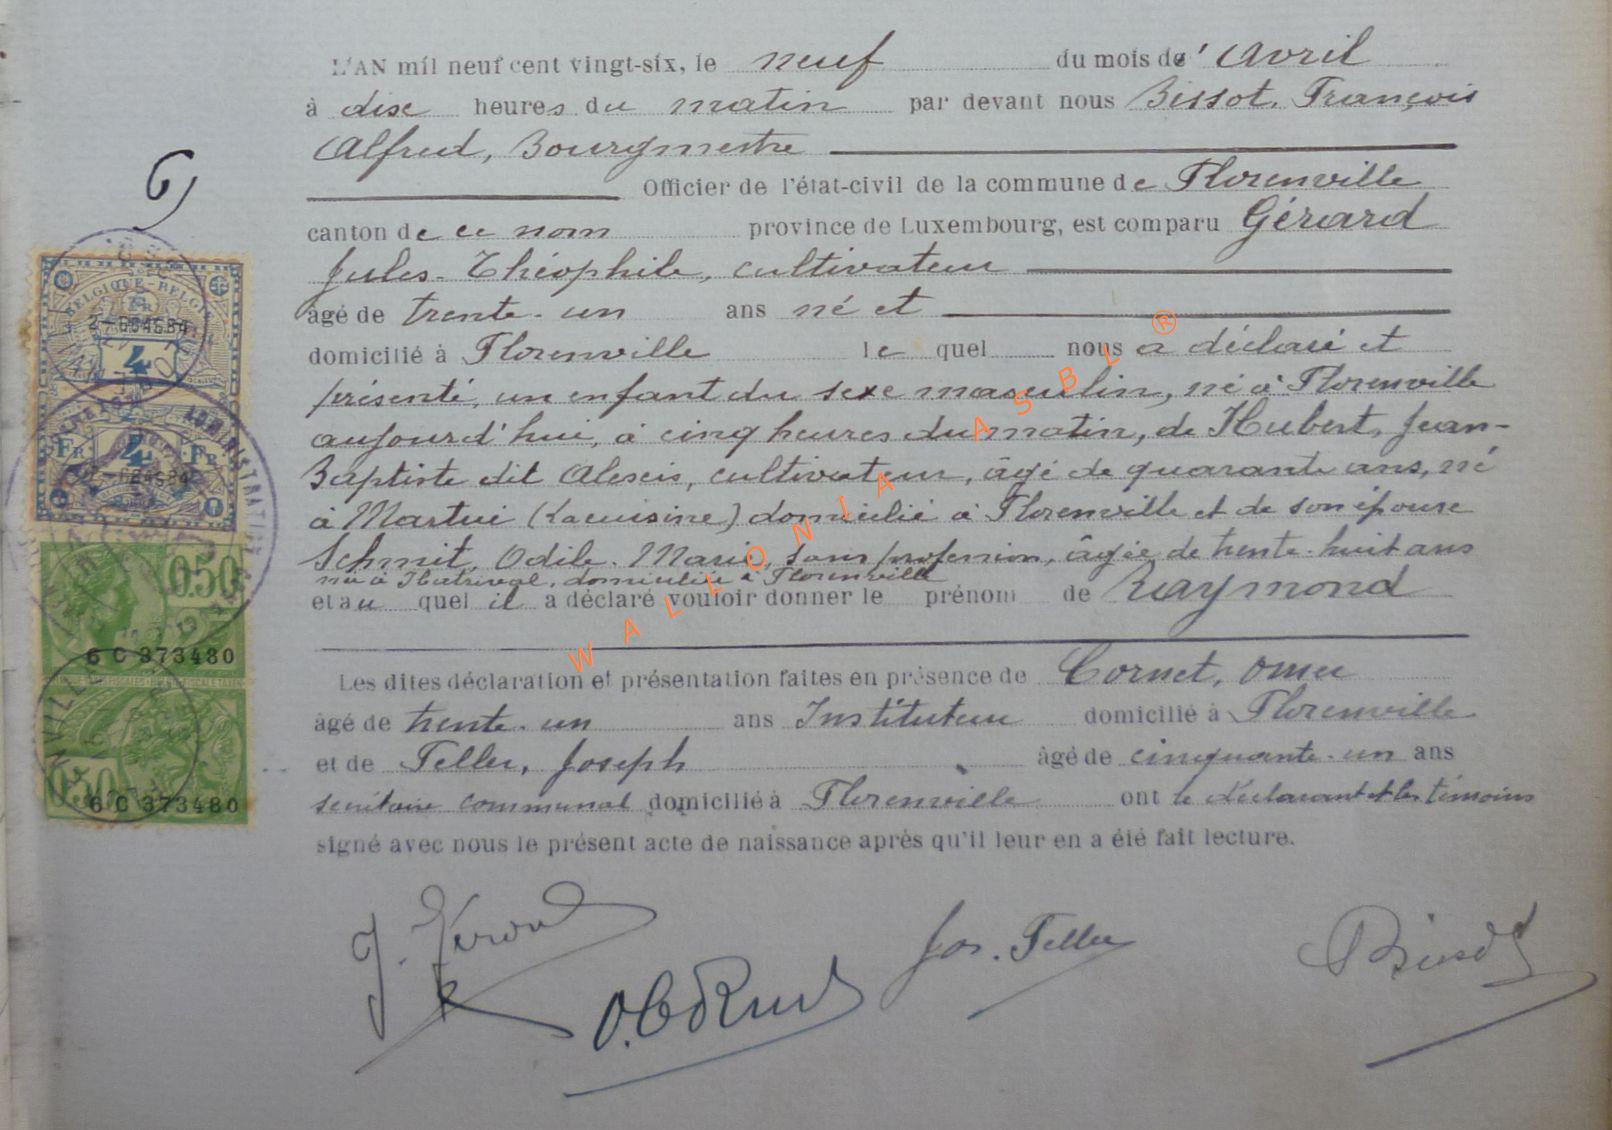 L'AN mil neuf cent vingt-six, le neuf du mois de Avril
à dixe heures du matin par devant nous Bissot, François
Alfred, Bourgmestre
Officier de l'état-civil de la commune de Florenville
canton de ce nom province de Luxembourg, est comparu Gérard
Jules-Théophile, cultivateur
âgé de trente-un ans né et
domicilié à Florenville le quel nous a déclaré et
présenté, un enfant du sexe masculin, né à Florenville
aujourd'hui, à cinq heures du matin, de Hubert, Jean-
Baptiste dit Alexis, cultivateur, âgé de quarante ans, né
à Martué (Lacuisine) domicilié à Florenville et de son épouse
Schmit, Odile-Marie, sans profession, âgée de trente-huit ans
née à domiciliée à Florenville
et au quel il a déclaré vouloir donner le prénom de Raymond
Les dites déclaration et présentation faites en présence de Cornet, Omer
âgé de trente-un ans Instituteur domicilié à Florenville
et de Teller, Joseph âgé de cinquante-un ans
secrétaire communal domicilié à Florenville ont le déclarant et les témoins
signé avec nous le présent acte de naissance après qu'il leur en a été fait lecture.
J. Gérard
Jos. Teller
Bissot
6
BELGIQUE-BELGIË
FR
4
FR 4 FR
ADMINISTRATION
0.50
6 C 373480
0.50
6 C 373480
WALLONIA ASBL ®